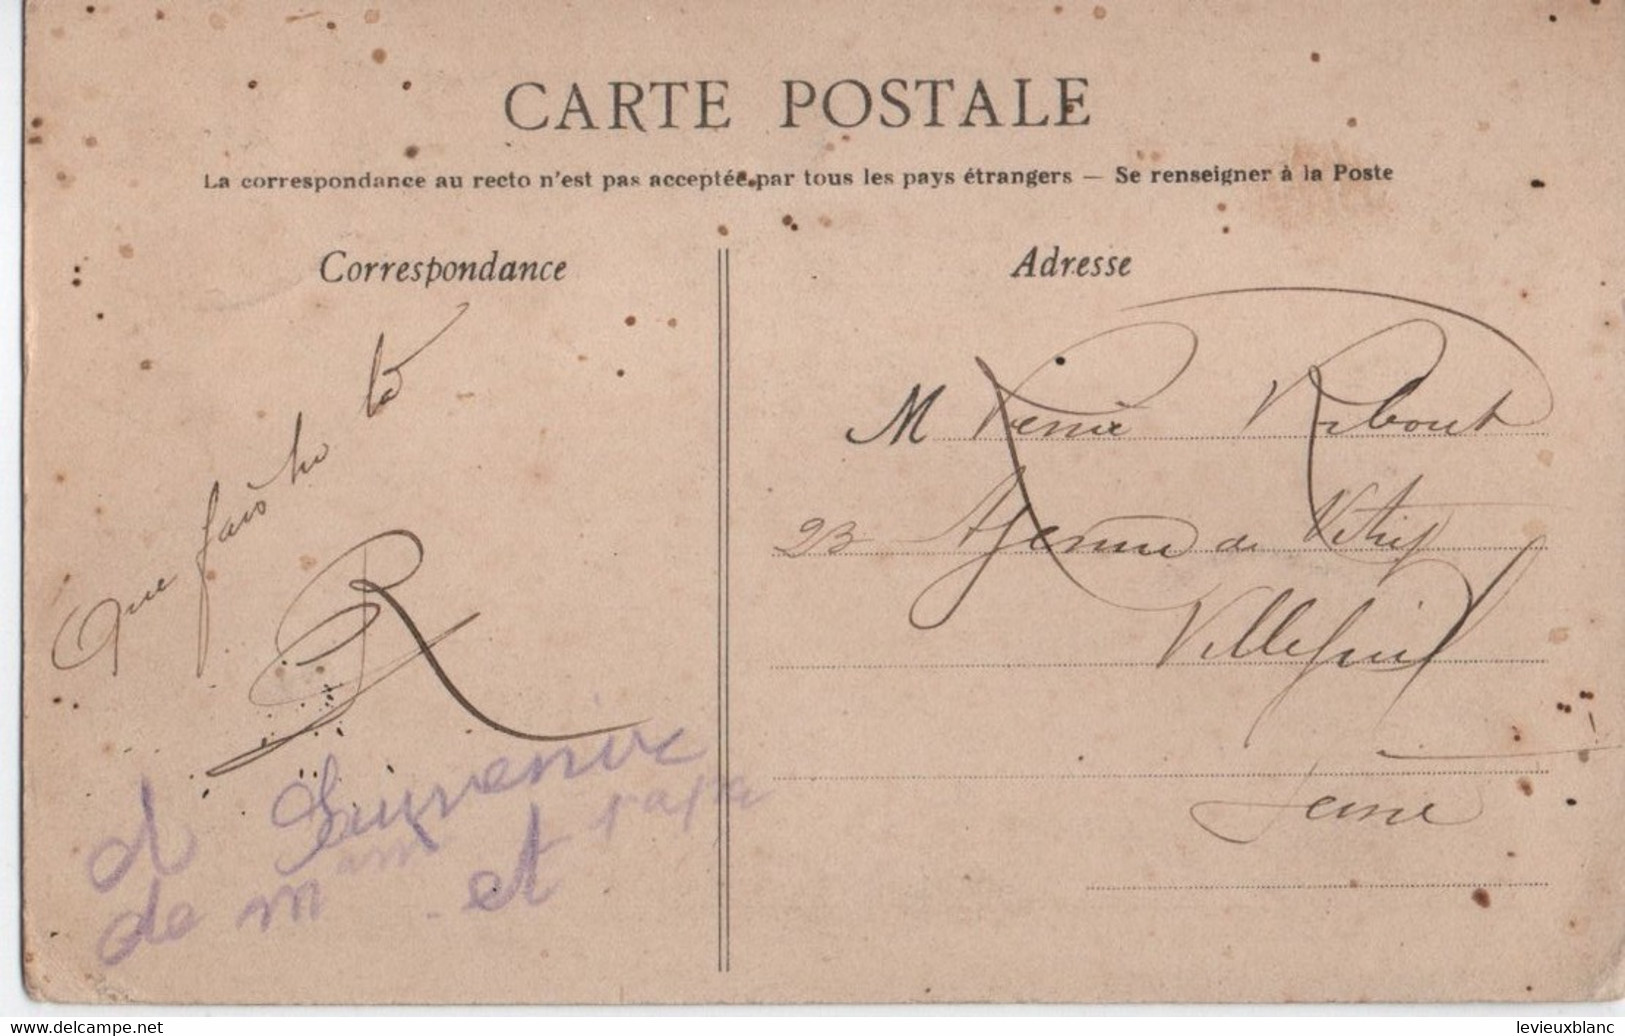 CARTE POSTALE
La correspondance au recto n'est pas acceptée par tous les pays étrangers — Se renseigner à la Poste
Correspondance
Que fais tu là
R
Souvenir
de maman et papa
Adresse
M Ribout
23 Avenue de Vitry
Villejuif
Seine
delcampe.net
levieuxblanc